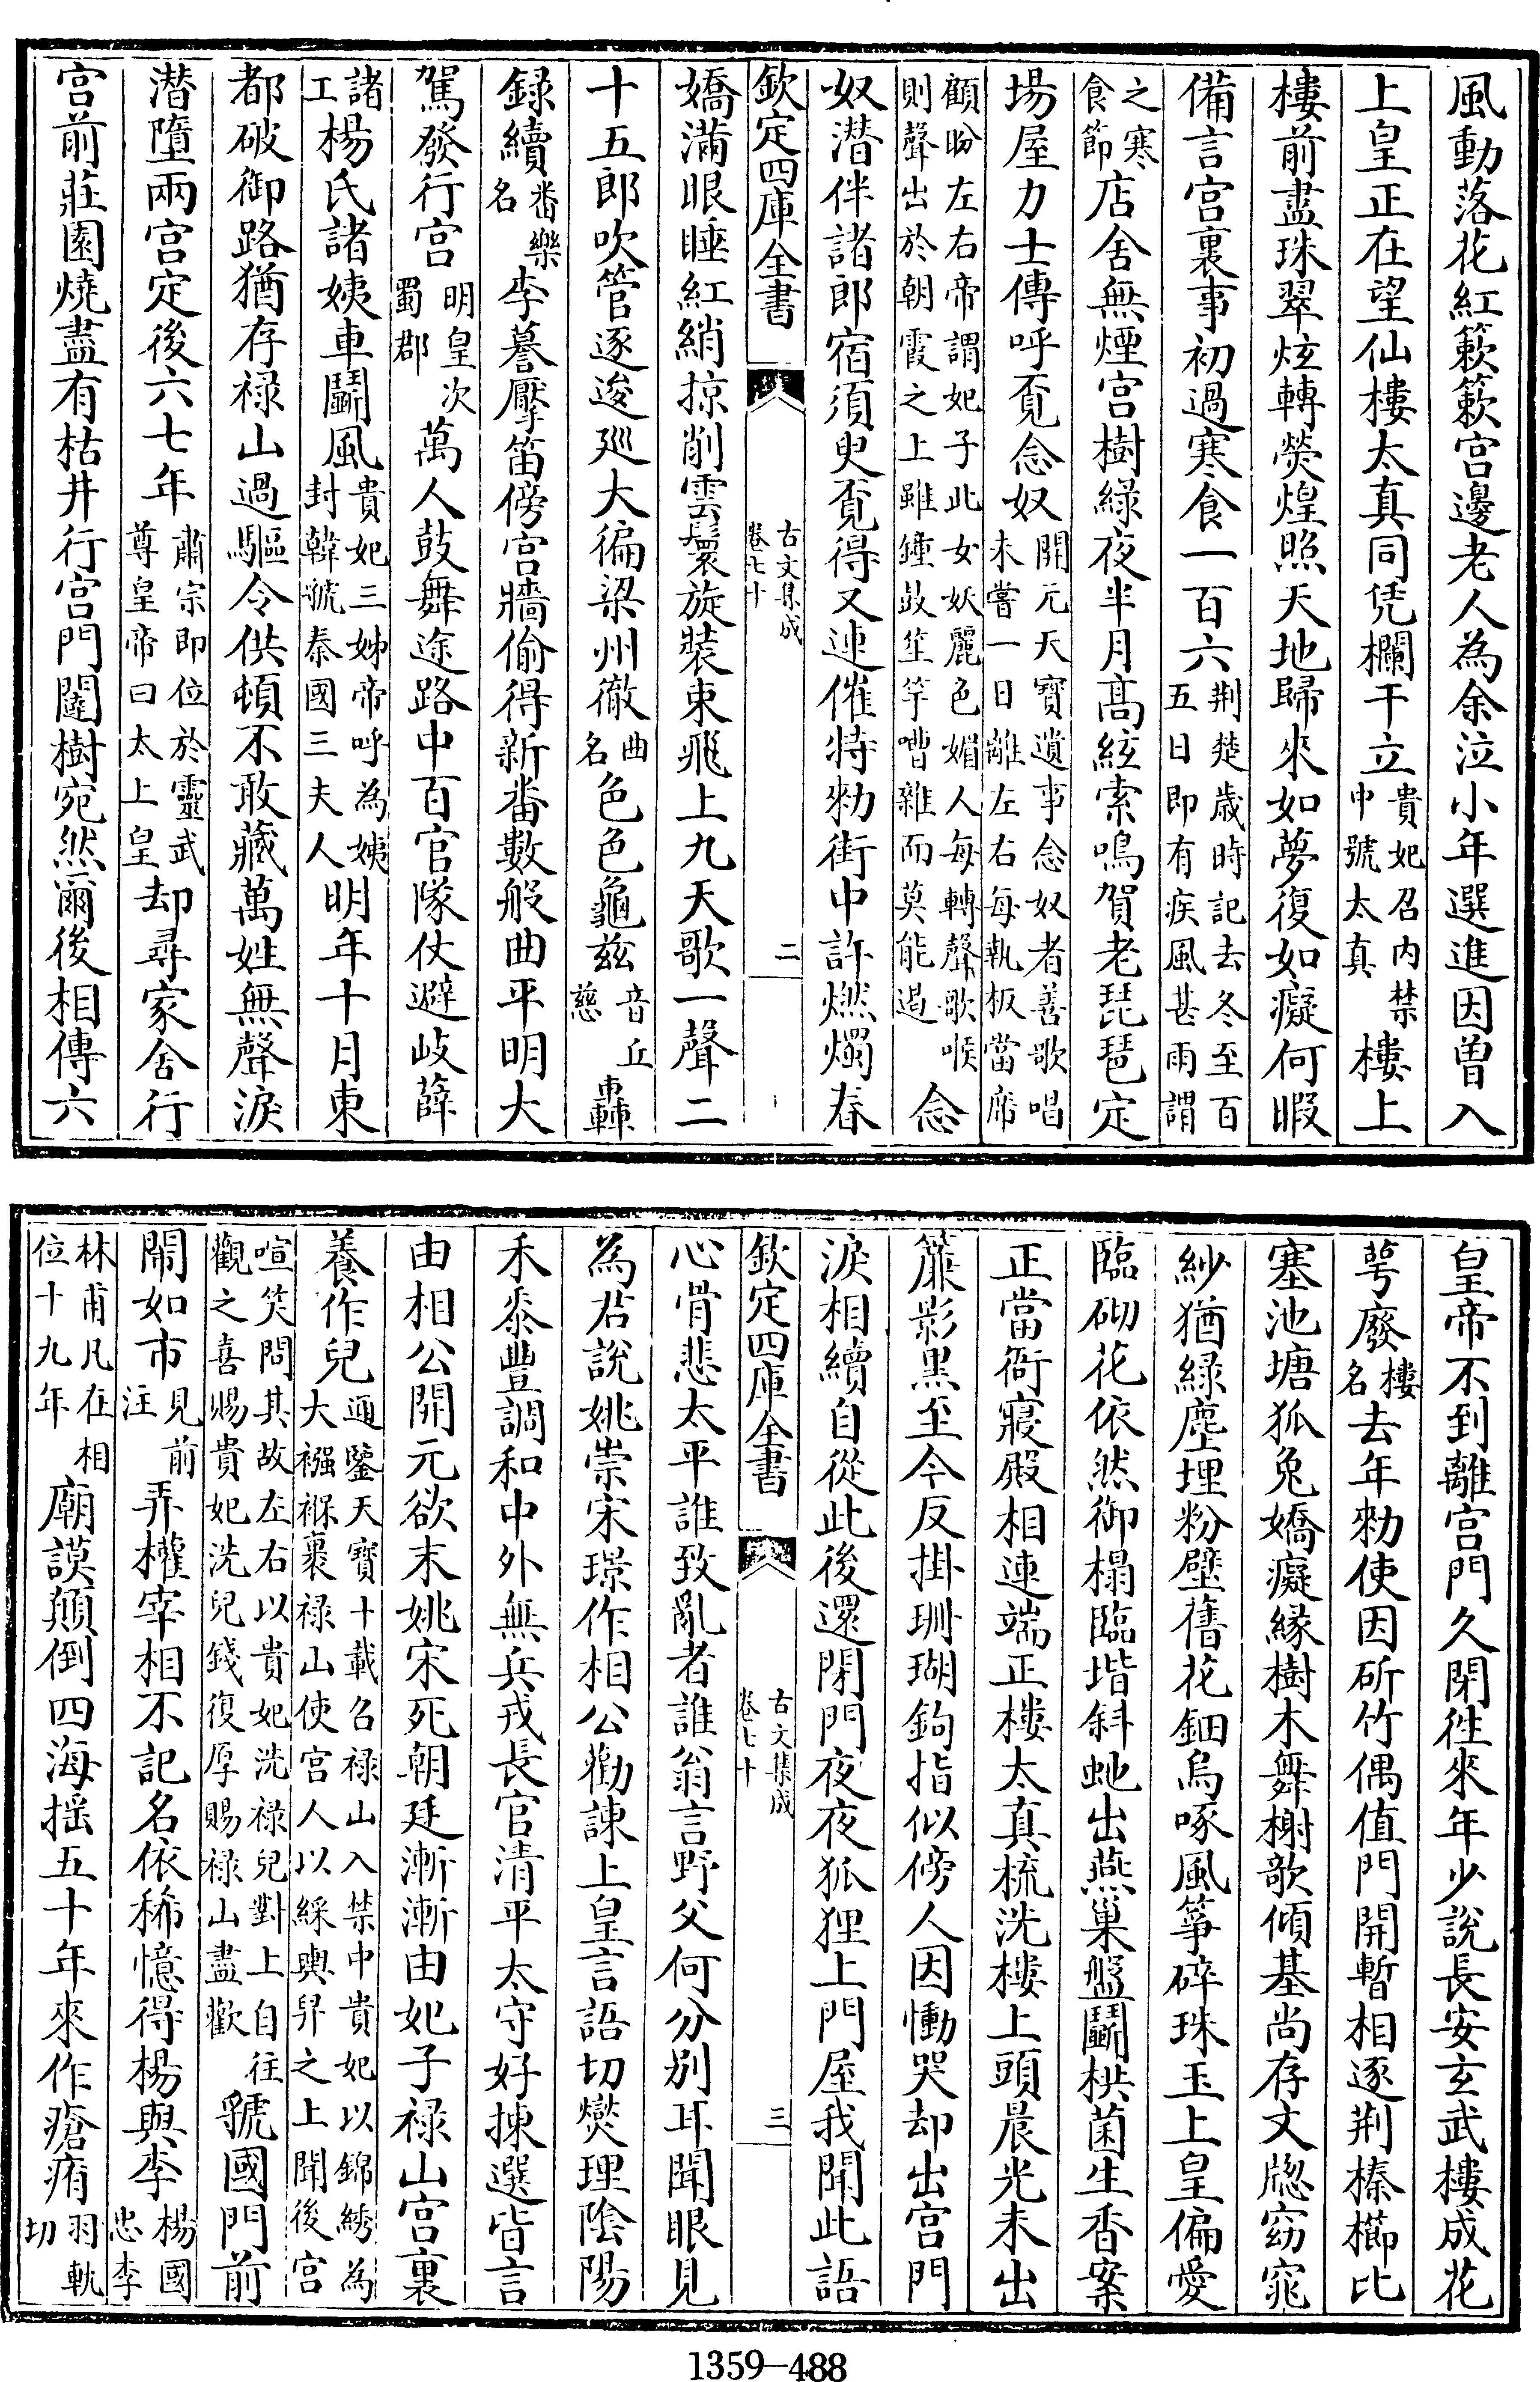 風動落花紅簌簌宫邊老人為余泣小年選進因曽入
上皇正在望仙樓太真同凭欄干立貴妃召内禁中號太真樓上
樓前盡珠翠炫轉熒煌照天地歸來如夢復如癡何暇
備言宫裏事初過寒食一百六荆楚歳時記去冬至百五日即有疾風甚雨謂
之寒食節店舍無煙宫樹緑夜半月髙絃索鳴賀老琵琶定
場屋力士傳呼覔念奴開元天寳遺事念奴者善歌唱未嘗一日離左右每執板當席
顧盼左右帝謂妃子此女妖麗色媚人每轉聲歌喉則聲出於朝霞之上雖鐘鼓笙竽嘈雜而莫能遏念
奴潜伴諸郎宿須臾覔得又連催特勑街中許燃燭春
欽定四庫全書 古文集成卷七十 二
嬌滿眼睡紅綃掠削雲鬟旋裝束飛上九天歌一聲二
十五郎吹管逐逡廵大徧梁州徹曲名色色龜兹音丘慈轟
録續番樂名李謩擪笛傍宫牆偷得新番數般曲平明大
駕發行宫明皇次蜀郡萬人鼓舞途路中百官隊仗避岐薛
諸工楊氏諸姨車鬭風貴妃三姊帝呼為姨封韓虢秦國三夫人明年十月東
都破御路猶存禄山過驅令供頓不敢藏萬姓無聲淚
潜墮兩宫定後六七年肅宗即位於靈武尊皇帝曰太上皇却尋家舍行
宫前莊園燒盡有枯井行宫門闥樹宛然爾後相傳六
皇帝不到離宫門久閉徃來年少說長安玄武樓成花
萼廢樓名去年勑使因斫竹偶值門開暫相逐荆榛櫛比
塞池塘狐兔嬌癡緣樹木舞榭歌傾基尚存文牕窈窕
紗猶緑塵埋粉壁舊花鈿烏啄風箏碎珠玉上皇偏愛
臨砌花依然御榻臨堦斜虵出燕巢盤鬭栱菌生香案
正當衙寢殿相連端正樓太真梳洗樓上頭晨光未出
簾影黒至今反掛珊瑚鉤指似傍人因慟哭却出宫門
淚相續自從此後還閉門夜夜狐狸上門屋我聞此語
欽定四庫全書 古文集成卷七十 三
心骨悲太平誰致亂者誰翁言野父何分别耳聞眼見
為君說姚崇宋璟作相公勸諫上皇言語切爕理陰陽
禾黍豐調和中外無兵戎長官清平太守好揀選皆言
由相公開元欲末姚宋死朝廷漸漸由妃子禄山宫裏
養作兒通鑒天寳十載召禄山入禁中貴妃以錦綉為大襁褓裹禄山使宫人以綵輿舁之上聞後宫
喧笑問其故左右以貴妃洗禄兒對上自往觀之喜賜貴妃洗兒錢復厚賜禄山盡歡虢國門前
閙如市見前注弄權宰相不記名依稀憶得楊與李楊國忠李
林甫凡在相位十九年廟謨顛倒四海揺五十年來作瘡痏羽軌切
1359—488